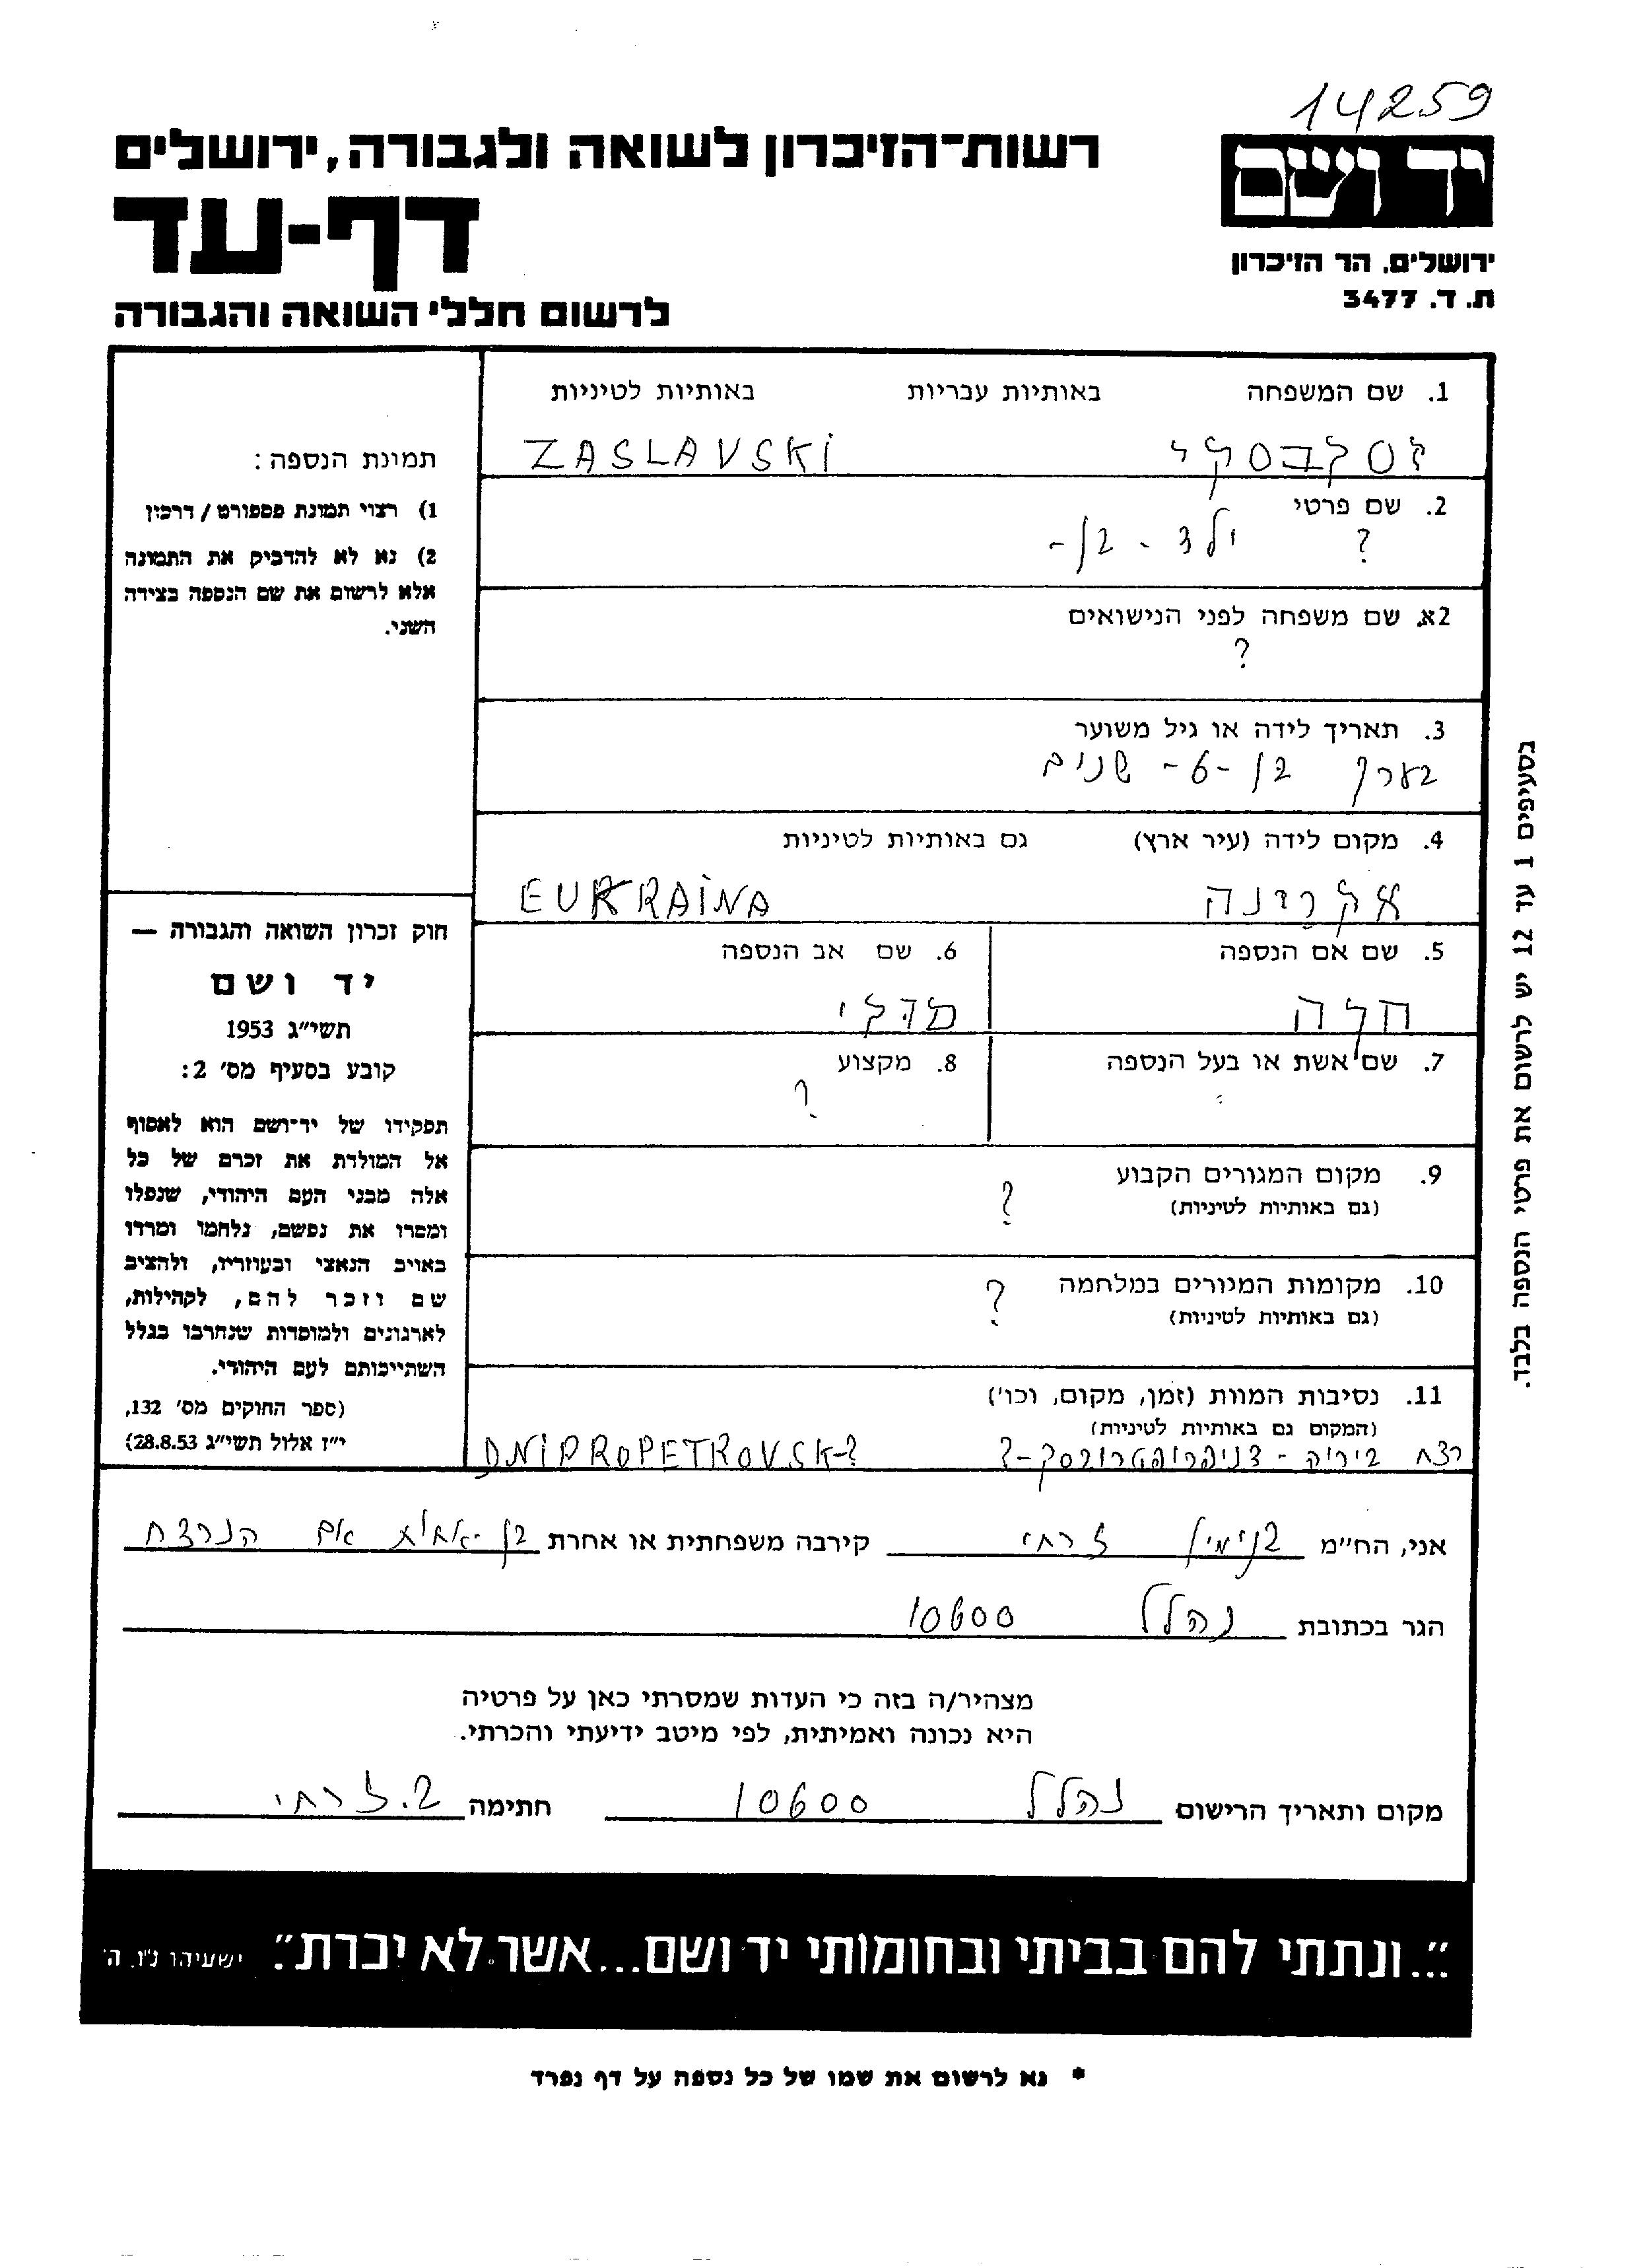 14259
יד ושם
ירושלים, הר הזיכרון
ת. ד. 3477
רשות־הזיכרון לשואה ולגבורה, ירושלים
דף-עד
לרשום חללי השואה והגבורה
1. שם המשפחה באותיות עבריות באותיות לטיניות
זסלבסקי ZASLAVSKI
2. שם פרטי
? ילד - בן -
2א. שם משפחה לפני הנישואים
?
3. תאריך לידה או גיל משוער
בערך בן -6- שנים
4. מקום לידה (עיר ארץ) גם באותיות לטיניות
אקרינה EUKRAINA
5. שם אם הנספה 6. שם אב הנספה
7. שם אשת או בעל הנספה 8. מקצוע
?
9. מקום המגורים הקבוע
(גם באותיות לטיניות)
?
10. מקומות המגורים במלחמה
(גם באותיות לטיניות)
?
11. נסיבות המוות (זמן, מקום, וכו')
(המקום גם באותיות לטיניות)
רצח ביריה - דניפרופטרובסק-? DNIPROPETROVSK-?
תמונת הנספה:
1) רצוי תמונת פספורט / דרכון
2) נא לא להדביק את התמונה
אלא לרשום את שם הנספה בצידה
השני.
חוק זכרון השואה והגבורה —
יד ושם
תשי"ג 1953
קובע בסעיף מס' 2:
תפקידו של יד־ושם הוא לאסוף
אל המולדת את זכרם של כל
אלה מבני העם היהודי, שנפלו
ומסרו את נפשם, נלחמו ומרדו
באויב הנאצי ובעוזריו, ולהציב
שם וזכר להם, לקהילות,
לארגונים ולמוסדות שנחרבו בגלל
השתייכותם לעם היהודי.
(ספר החוקים מס' 132,
י"ז אלול תשי"ג 28.8.53)
בסעיפים 1 עד 12 יש לרשום את פרטי הנספה בלבד.
אני, הח"מ בנימין זרחי קירבה משפחתית או אחרת בן-אחות אם הנרצח
הגר בכתובת נהלל 10600
מצהיר/ה בזה כי העדות שמסרתי כאן על פרטיה
היא נכונה ואמיתית, לפי מיטב ידיעתי והכרתי.
מקום ותאריך הרישום נהלל 10600 חתימה ב. זרחי
"...ונתתי להם בביתי ובחומותי יד ושם...אשר לא יכרת". ישעיהו נ"ו, ה'
* נא לרשום את שמו של כל נספה על דף נפרד